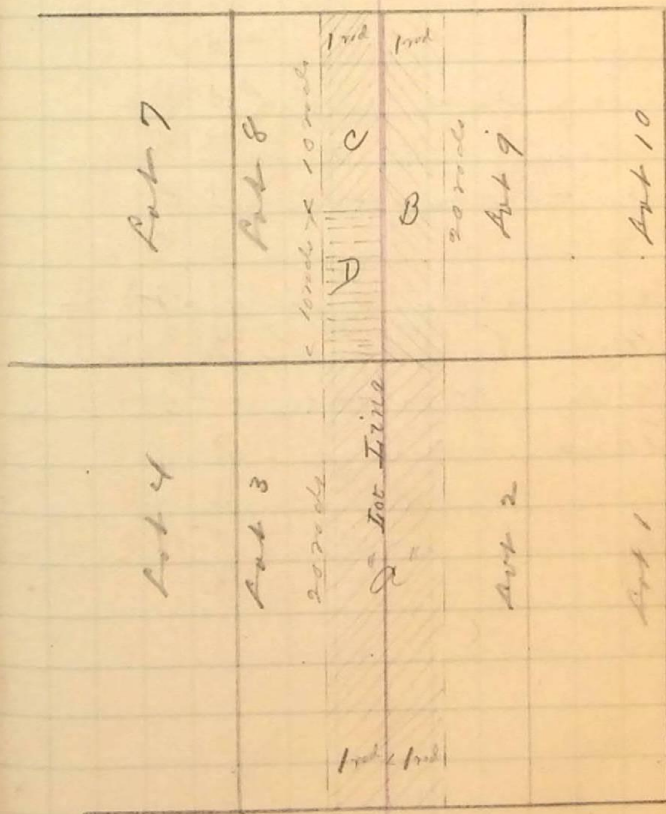 1 rod
1 rod
Lot 7
Lot 8
10 rods
10 rods
C
D
B
20 rods
Lot 9
Lot 10
Lot 4
Lot 3
20 rods
Lot Line
Lot 2
Lot 1
1 rod
1 rod